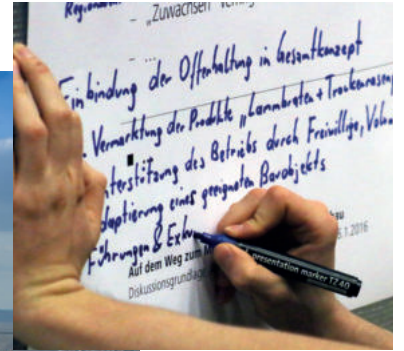 – „Zuwachsen"
– ...
Einbindung der Offenhaltung in Gesamtkonzept
Vermarktung der Produkte „Lammbraten + Trockenrasen
nterstützung des Betriebs durch Freiwillige, Volon
daptierung eines geeigneten Barobjekts
Führungen & Exku
Auf dem Weg zum
5.1.2016
Diskussionsgrundlage
presentation marker TZ 40